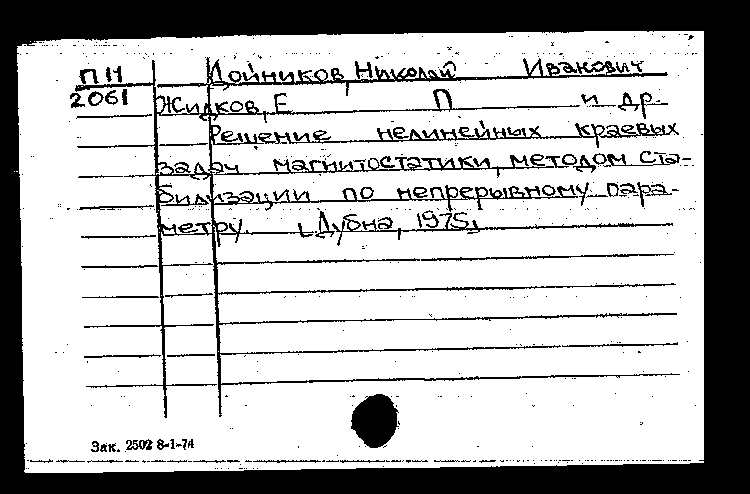 П11 Дойников, Николай Иванович
2061 Жидков, Е П и др.
Решение нелинейных краевых
задач магнитостатики, методом ста-
билизации по непрерывному пара-
метру. [Дубна, 1975]
Зак. 2502 8-1-74